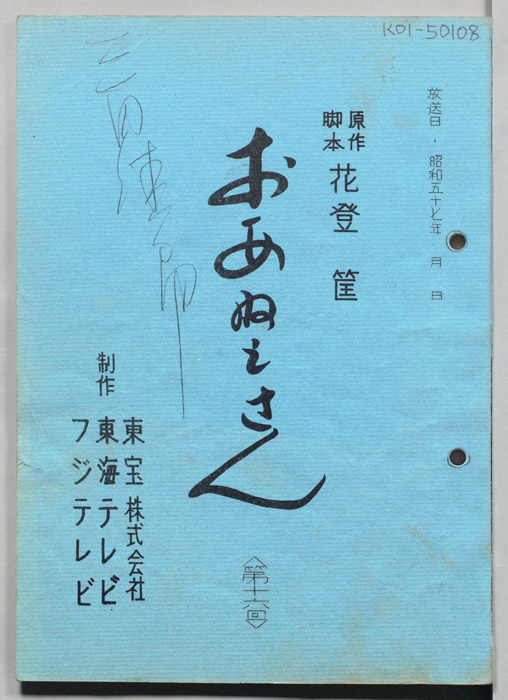 K01-50108
放送日・昭和五十七年 月 日
原作
脚本
花登 筐
おあねえさん
〈第十六回〉
制作
東宝株式会社
東海テレビ
フジテレビ